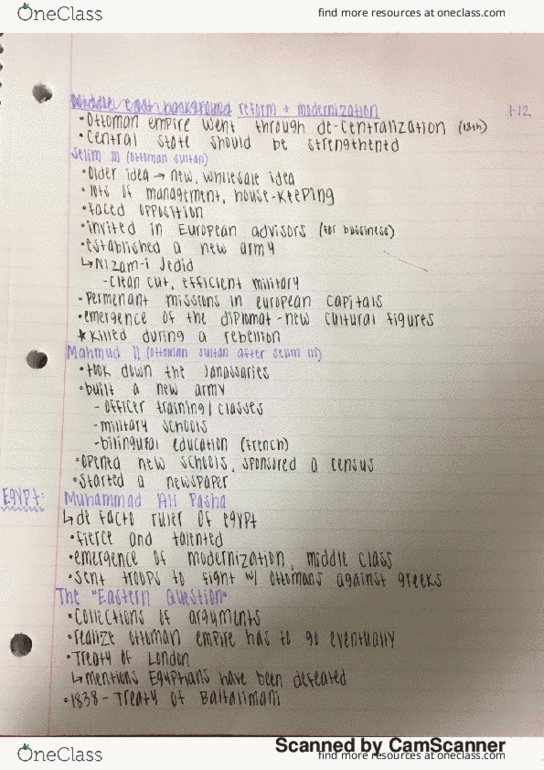 OneClass
find more resources at oneclass.com
Middle east background reform + modernization
1-12
•Ottoman empire went through de-centralization (18th)
•Central state should be strengthened
Selim III (Ottoman sultan)
•older idea → new, wholesale idea
•lots of management, house-keeping
•faced opposition
•invited in European advisors (for bussiness)
•established a new army
↳Nizam-i Jedid
-clean cut, efficient military
•Permenant missions in european capitals
•emergence of the diplomat-new cultural figures
*killed during a rebellion
Mahmud II (Ottoman sultan after selim III)
•took down the Janassaries
•built a new army
-officer training/classes
-military schools
-bilingural education (french)
•opened new schools, sponsored a census
•started a newspaper
Egypt: Muhammad Ali Pasha
↳de facto ruler of egypt
•fierce and talented
•emergence of modernization, middle class
•sent troops to fight w/ ottomans against greeks
The "Eastern Question"
•collections of arguments
•realize ottoman empire has to go eventually
•Treaty of London
↳mentions Egyptians have been defeated
•1838- Treaty of Baltalimani
Scanned by CamScanner
OneClass
find more resources at oneclass.com